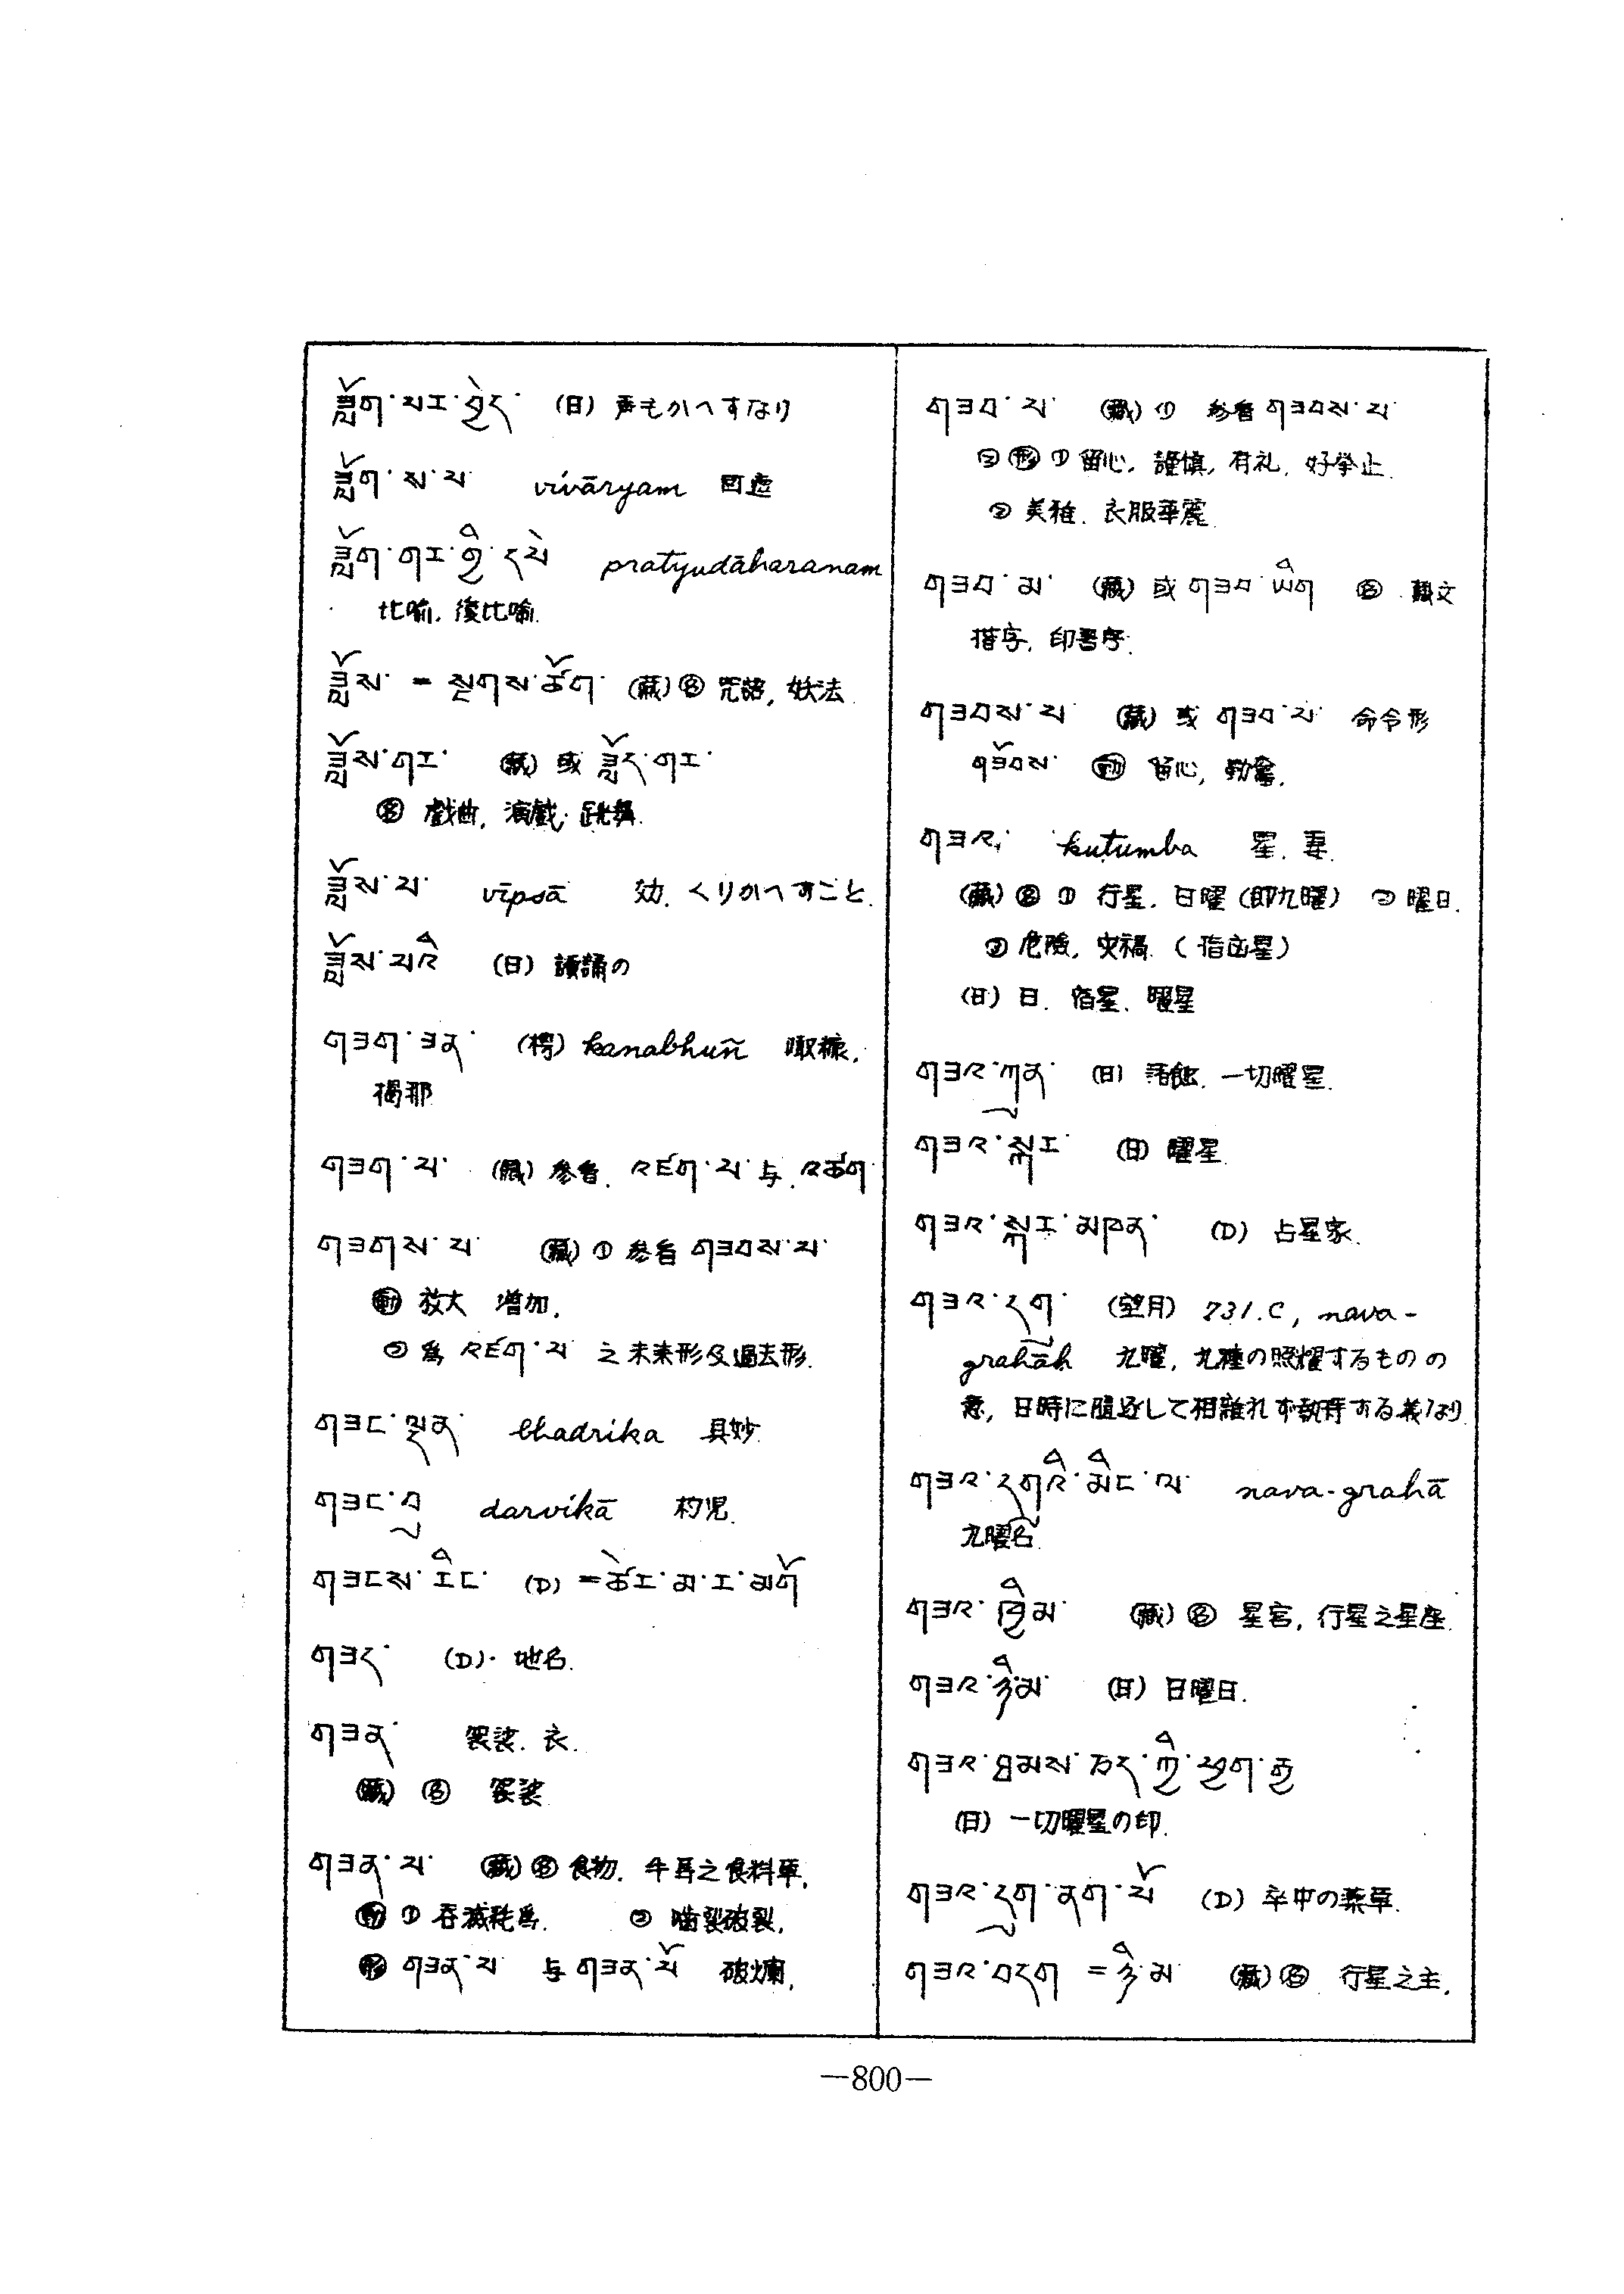 ཟློག་པར་བྱེད་ (日) 声をかへすなり
ཟློག་ས་པ་ vivāryam 回遮
ཟློག་གར་གྱི་དཔེ pratyudāharanam
比喻, 後比喻.
ཟློས་ = སྔགས་ཚོག་ (藏)名 咒語, 妖法.
ཟློས་གར་ (藏) 或 ཟློད་གར་
名 戲曲, 演戲, 跳舞.
ཟློས་པ་ vīpsā 効. くりかへすこと.
ཟློས་པའི (日) 讀誦の
གཟག་ཟན་ (楞) kanabhuñ 噉糠,
揭那
གཟག་པ་ (藏) 參看. འཛག་པ་ 与. འཚག
གཟགས་པ་ (藏) ① 參看 གཟབས་པ་
動 放大 增加.
② 為 འཛག་པ་ 之未来形及過去形.
གཟང་ལྡན་ bhadrika 具妙.
གཟང་བུ darvikā 杓児.
གཟངས་རིང་ (D) = ཚེར་མ་ར་མགོ
གཟད་ (D). 地名.
གཟན་ 袈裟. 衣.
(藏) 名 袈裟.
གཟན་པ་ (藏)名 食物. 牛馬之食料草.
動 ① 吞滅耗為. ② 嚙裂破裂.
形 གཟན་པ་ 与 གཟན་པོ 破爛.
གཟབ་པ་ (藏) ① 參看 གཟབས་པ་
② 形 ① 留心, 謹慎, 有礼, 好挙止.
② 美雅. 衣服華麗.
གཟབ་མ་ (藏) 或 གཟབ་ཡིག 名 藏文
揩字, 印書字.
གཟབས་པ་ (藏) 或 གཟབ་པ་ 命令形
གཟོབས་ 動 留心, 勤奮.
གཟའ་ kutumba 星. 妻.
(藏) 名 ① 行星. 日曜 (即九曜) ② 曜日.
③ 危險, 灾禍. (指凶星)
(日) 日. 宿星. 曜星
གཟའ་ཀུན་ (日) 諸蝕. 一切曜星.
གཟའ་སྐར་ (日) 曜星.
གཟའ་སྐར་མཁན་ (D) 占星家.
གཟའ་དགུ་ (望月) 731.C, nava-
grahāh 九曜, 九種の照耀するものの
意, 日時に隨逐して相離れず執持する義なり.
གཟའ་དགུའི་མིང་ལ་ nava-grahā
九曜名.
གཟའ་ཁྱིམ་ (藏)名 星宮, 行星之星座.
གཟའ་ཉི་མ་ (日) 日曜日.
གཟའ་ཐམས་ཅད་ཀྱི་ཕྱག་རྒྱ
(日) 一切曜星の印.
གཟའ་དུག་ནག་པོ (D) 卒中の薬草.
གཟའ་བདག = ཉི་མ་ (藏)名 行星之主.
—800—